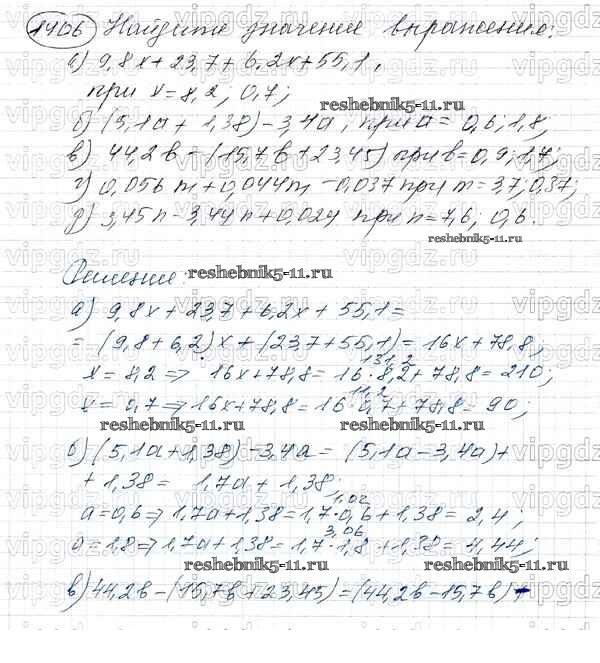 1406 Найдите значение выражения:
а) 9,8x + 23,7 + 6,2x + 55,1,
при x = 8,2; 0,7;
reshebnik5-11.ru
б) (5,1a + 1,38) - 3,4a, при a = 0,6; 1,8;
в) 44,2b - (15,7b + 23,45) при b = 0,9; 1,7;
г) 0,056m + 0,044m - 0,037 при m = 3,7; 0,37;
д) 3,45n - 3,44n + 0,024 при n = 7,6; 0,6.
reshebnik5-11.ru
Решение:
reshebnik5-11.ru
а) 9,8x + 23,7 + 6,2x + 55,1 =
= (9,8 + 6,2)x + (23,7 + 55,1) = 16x + 78,8;
131,2
x = 8,2 => 16x + 78,8 = 16·8,2 + 78,8 = 210;
11,2
x = 0,7 => 16x + 78,8 = 16·0,7 + 78,8 = 90;
reshebnik5-11.ru reshebnik5-11.ru
б) (5,1a + 1,38) - 3,4a = (5,1a - 3,4a) +
+ 1,38 = 1,7a + 1,38;
1,02
a = 0,6 => 1,7a + 1,38 = 1,7·0,6 + 1,38 = 2,4;
3,06
a = 1,8 => 1,7a + 1,38 = 1,7·1,8 + 1,38 = 4,44;
reshebnik5-11.ru reshebnik5-11.ru
в) 44,2b - (15,7b + 23,45) = (44,2b - 15,7b) -